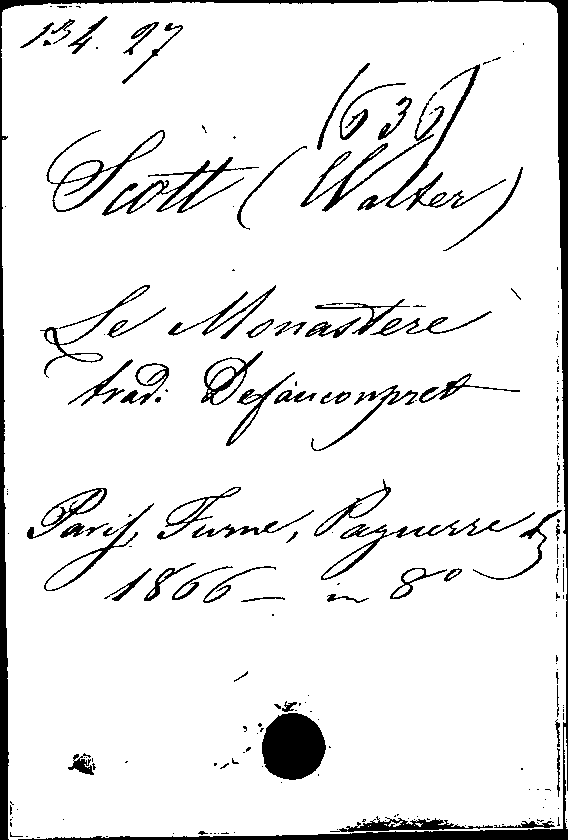 134. 27
(636)
Scott (Walter)
Le Monastère
trad: Defauconpret
Paris, Furne, Pagnerre &
1866 — in 8º